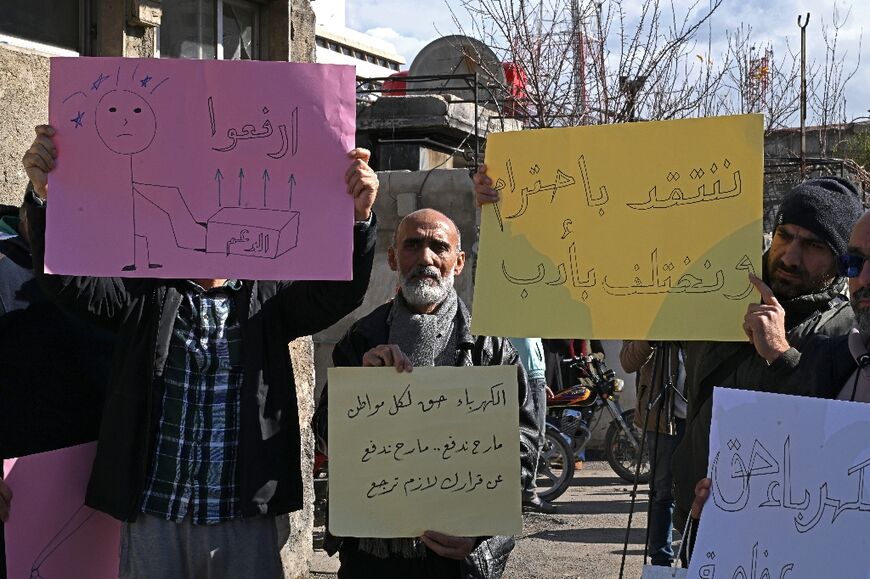 ارفعوا
الدعم
ننتقد باحترام
و نختلف بأدب
الكهرباء حق لكل مواطن
مارح ندفع.. مارح ندفع
عن قرارك لازم ترجع
الكهرباء حق